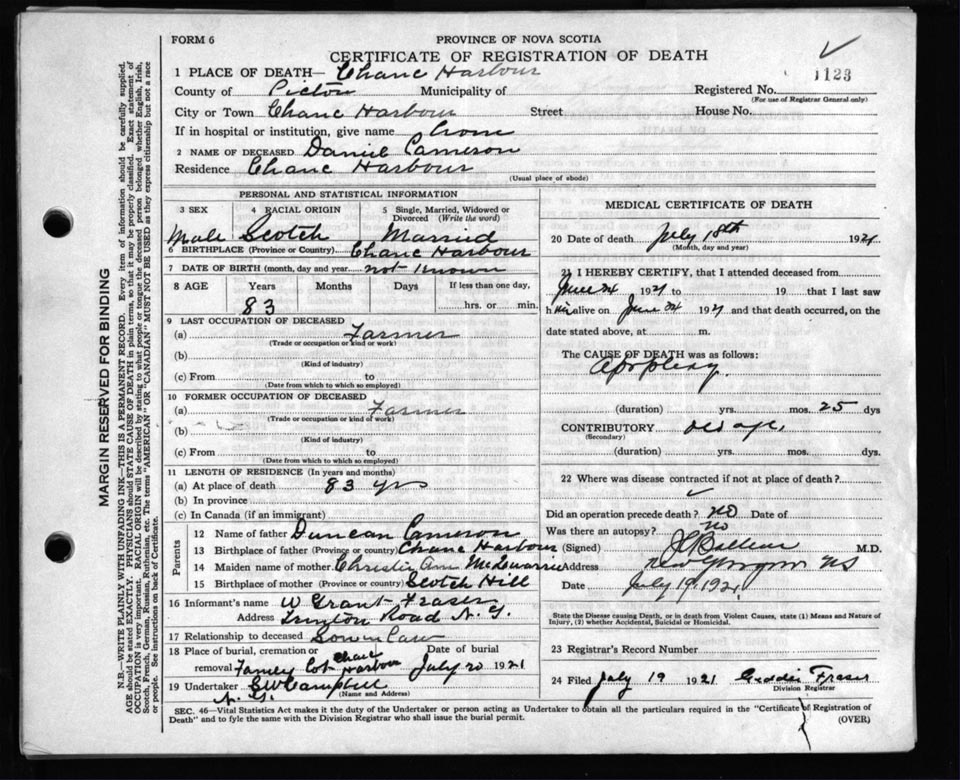 FORM 6
PROVINCE OF NOVA SCOTIA
CERTIFICATE OF REGISTRATION OF DEATH
1123
1 PLACE OF DEATH— Chanc Harbour
County of Pictou Municipality of Registered No.
(For use of Registrar General only)
City or Town Chanc Harbour Street House No.
If in hospital or institution, give name
2 NAME OF DECEASED Daniel Cameron
Residence Chanc Harbour
(Usual place of abode)
PERSONAL AND STATISTICAL INFORMATION
3 SEX 4 RACIAL ORIGIN 5 Single, Married, Widowed or Divorced (Write the word)
Male Scotch Married
6 BIRTHPLACE (Province or Country) Chanc Harbour
7 DATE OF BIRTH (month, day and year) not Known
8 AGE Years Months Days If less than one day,
83 hrs. or min.
9 LAST OCCUPATION OF DECEASED
(a) Farmer
(Trade or occupation or kind or work)
(b)
(Kind of industry)
(c) From to
(Date from which to which so employed)
10 FORMER OCCUPATION OF DECEASED
(a) Farmer
(Trade or occupation or kind of work)
(b)
(Kind of industry)
(c) From to
(Date from which to which so employed)
11 LENGTH OF RESIDENCE (In years and months)
(a) At place of death 83 yrs
(b) In province
(c) In Canada (if an immigrant)
Parents
12 Name of father Duncan Cameron
13 Birthplace of father (Province or country) Chanc Harbour
14 Maiden name of mother Christie Ann
15 Birthplace of mother (Province or country) Scotch Hill
16 Informant's name W Grant Fraser
Address Road N. G.
17 Relationship to deceased Son in Law
18 Place of burial, cremation or removal Family Lot Chanc Harbour Date of burial July 20 1921
19 Undertaker SW Campbell
(Name and Address)
N. G.
MEDICAL CERTIFICATE OF DEATH
20 Date of death July 18th 1921
(Month, day and year)
21 I HEREBY CERTIFY, that I attended deceased from
June 24 1921 to 19 that I last saw
him alive on June 24 1921 and that death occurred, on the
date stated above, at m.
The CAUSE OF DEATH was as follows:
Apoplexy.
(duration) yrs. mos. 25 dys
CONTRIBUTORY old age.
(Secondary)
(duration) yrs. mos. dys.
22 Where was disease contracted if not at place of death?
Did an operation precede death? no Date of
Was there an autopsy? no
(Signed) M.D.
Address New Glasgow NS
Date July 19, 1921
State the Disease Causing Death, or in death from Violent Causes, state (1) Means and Nature of Injury, (2) whether Accidental, Suicidal or Homicidal.
23 Registrar's Record Number
24 Filed July 19 1921 Geddie Fraser
Division Registrar
SEC. 46—Vital Statistics Act makes it the duty of the Undertaker or person acting as Undertaker to obtain all the particulars required in the "Certificate of Registration of
Death" and to fyle the same with the Division Registrar who shall issue the burial permit.
(OVER)
MARGIN RESERVED FOR BINDING
N.B.—WRITE PLAINLY WITH UNFADING INK—THIS IS A PERMANENT RECORD. Every item of information should be carefully supplied.
AGE should be stated EXACTLY. PHYSICIANS should STATE CAUSE OF DEATH in plain terms, so that it may be properly classified. Exact statement of
OCCUPATION is very important. RACIAL ORIGIN will be described by stating to what people or tongue the deceased person belonged whether English, Irish,
Scotch, French, German, Russian, Ruthenian, etc. The terms "AMERICAN" OR "CANADIAN" MUST NOT BE USED as they express citizenship but not a race
or people. See instructions on back of Certificate.